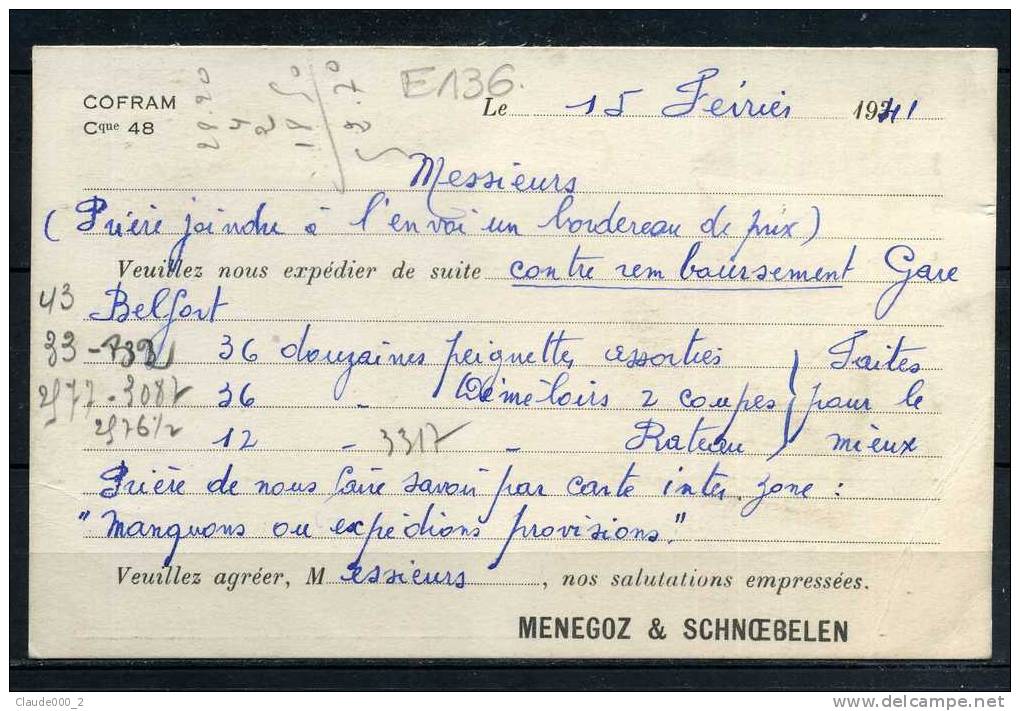 COFRAM
Cque 48
29.20
E136.
Le 15 Février 1941
Messieurs
(Prière joindre à l'envoi un bordereau de prix)
Veuillez nous expédier de suite contre remboursement Gare
43 Belfort
36 douzaines peignettes assorties Faites
36 - Démêloirs 2 coupes pour le
12 - 3317 - Rateau mieux
Prière de nous faire savoir par carte inter. zone :
"Manquons ou expédions provisions."
Veuillez agréer, Messieurs, nos salutations empressées.
MENEGOZ & SCHNŒBELEN
Claude000_2
delcampe.net